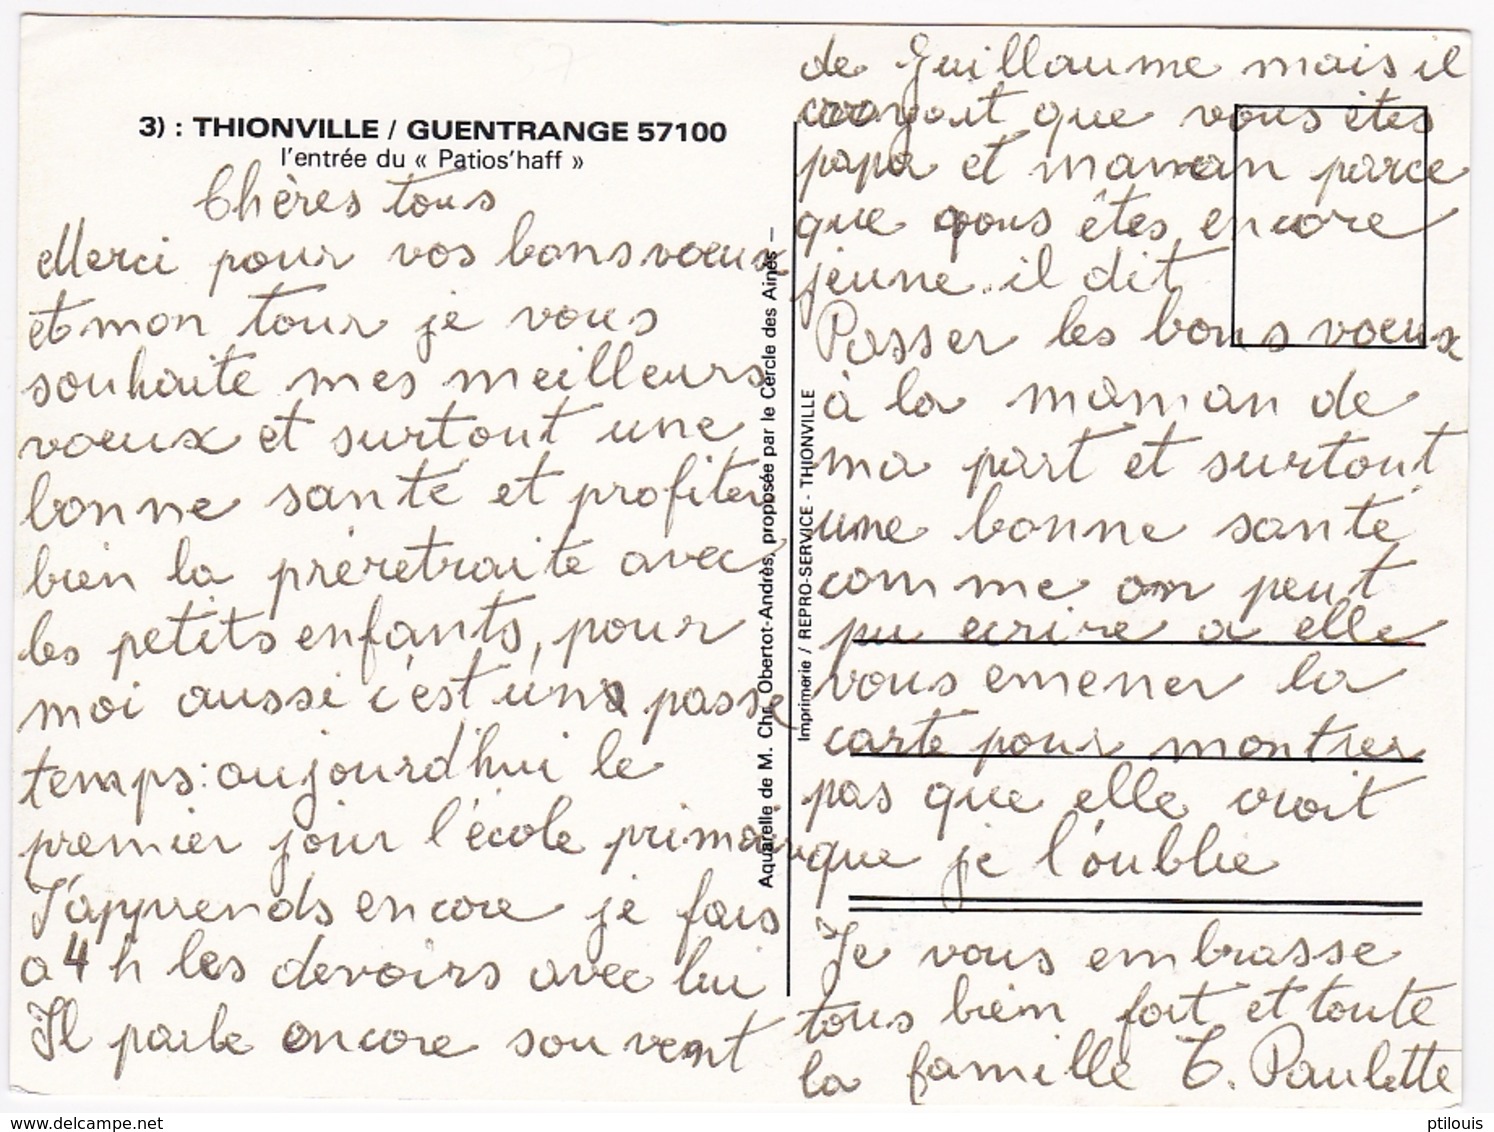 3) : THIONVILLE / GUENTRANGE 57100
l'entrée du « Patios'haff »
Chères tous
Merci pour vos bons voeux
et mon tour je vous
souhaite mes meilleurs
voeux et surtout une
bonne santé et profiter
bien la préretraite avec
les petits enfants, pour
moi aussi c'est un passe
temps: aujourd'hui le
premier jour l'école primair
J'apprends encore je fais
a 4 h les devoirs avec lui
Il parle encore souvent
Aquarelle de M. Chr. Obertot-Andrès, proposée par le Cercle des Ainés –
Imprimerie / REPRO-SERVICE - THIONVILLE
de Guillaume mais il
croyait que vous êtes
papa et maman parce
que vous êtes encore
jeune il dit
Passer les bons voeux
à la maman de
ma part et surtout
une bonne santé
comme on peut
pu ecrire a elle
vous emener la
carte pour montrer
pas que elle croit
que je l'oublie
Je vous embrasse
tous bien fort et toute
la famille T. Paulette
ptilouis